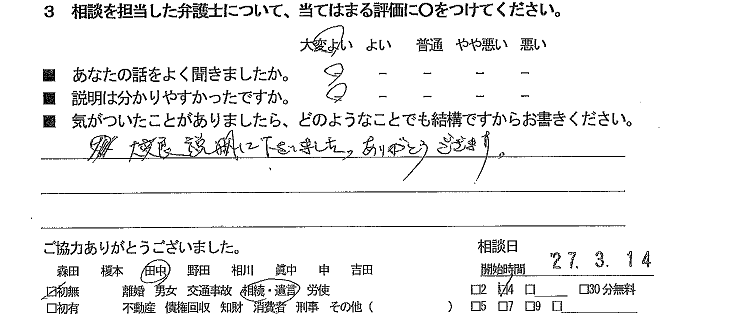 3 相談を担当した弁護士について、当てはまる評価に〇をつけてください。
大変よい よい 普通 やや悪い 悪い
■ あなたの話をよく聞きましたか。 − − − −
■ 説明は分かりやすかったですか。 − − − −
■ 気がついたことがありましたら、どのようなことでも結構ですからお書きください。
説明して下さいました。ありがとうございます。
ご協力ありがとうございました。 相談日 27.3.14
森田 榎本 田中 野田 相川 眞中 申 吉田 開始時間
☑初無 離婚 男女 交通事故 相続・遺言 労使 □2 ☑4 □ □30分無料
□初有 不動産 債権回収 知財 消費者 刑事 その他( ) □5 □7 □9 □